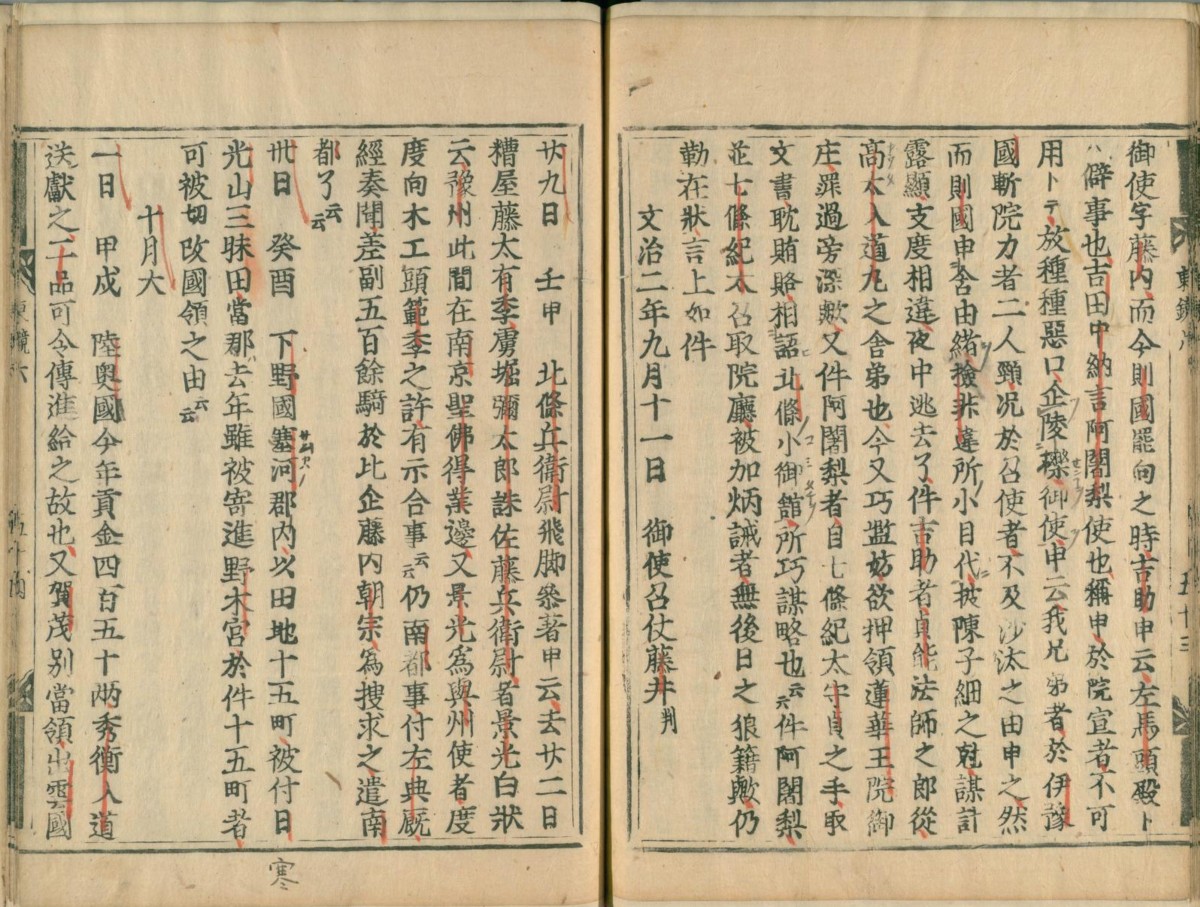 御使字藤内、而今則國罷向之時、吉助申云、左馬頭殿ト
ハ僻事也、吉田中納言阿闍梨使也、稱申、於院宣者、不可
用トテ、放種種惡口、企陵礫、御使申云、我兄弟者、於伊豫
國斬院力者二人頸、况於召使者、不及沙汰之由申之、然
而則國申含由緒、撿非違所小目代、披陳子細之尅、謀計
露顯、支度相違、夜中逃去了、件吉助者、貞能法師之郎從
高太入道丸之舎弟也、今又巧濫妨、欲押領蓮華王院御
庄、罪過旁深歟、又件阿闍梨者、自七條紀太守貞之手、取
文書、耽賄賂、相語北條小御舘、所巧謀略也云云、件阿闍梨
並七條紀太、召取院廳、被加炳誡者、無後日之狼籍歟、仍
勒在狀、言上如件
文治二年九月十一日 御使召仗藤井判
廿九日 壬申 北條兵衛尉飛脚叅著申云、去廿二日
糟屋藤太有季、虜堀彌太郎、誅佐藤兵衛尉、者景光白狀
云、豫州此間在南京聖佛得業邊、又景光爲與州使者、度
度向木工頭範季之許、有示合事云云、仍南都事、付左典厩
經奏聞、差副五百餘騎於比企藤内朝宗、爲搜求之遣南
都了云云
卅日 癸酉 下野國塞河郡内、以田地十五町、被付日
光山三昧田、當郡ハ去年雖被寄進野木宮、於件十五町者、
可被切改國領之由云云
十月大
一日 甲戌 陸奥國今年貢金四百五十兩、秀衡入道
送獻之、二品可令傳進給之故也、又賀茂別當領、出雲國
五十三
寒